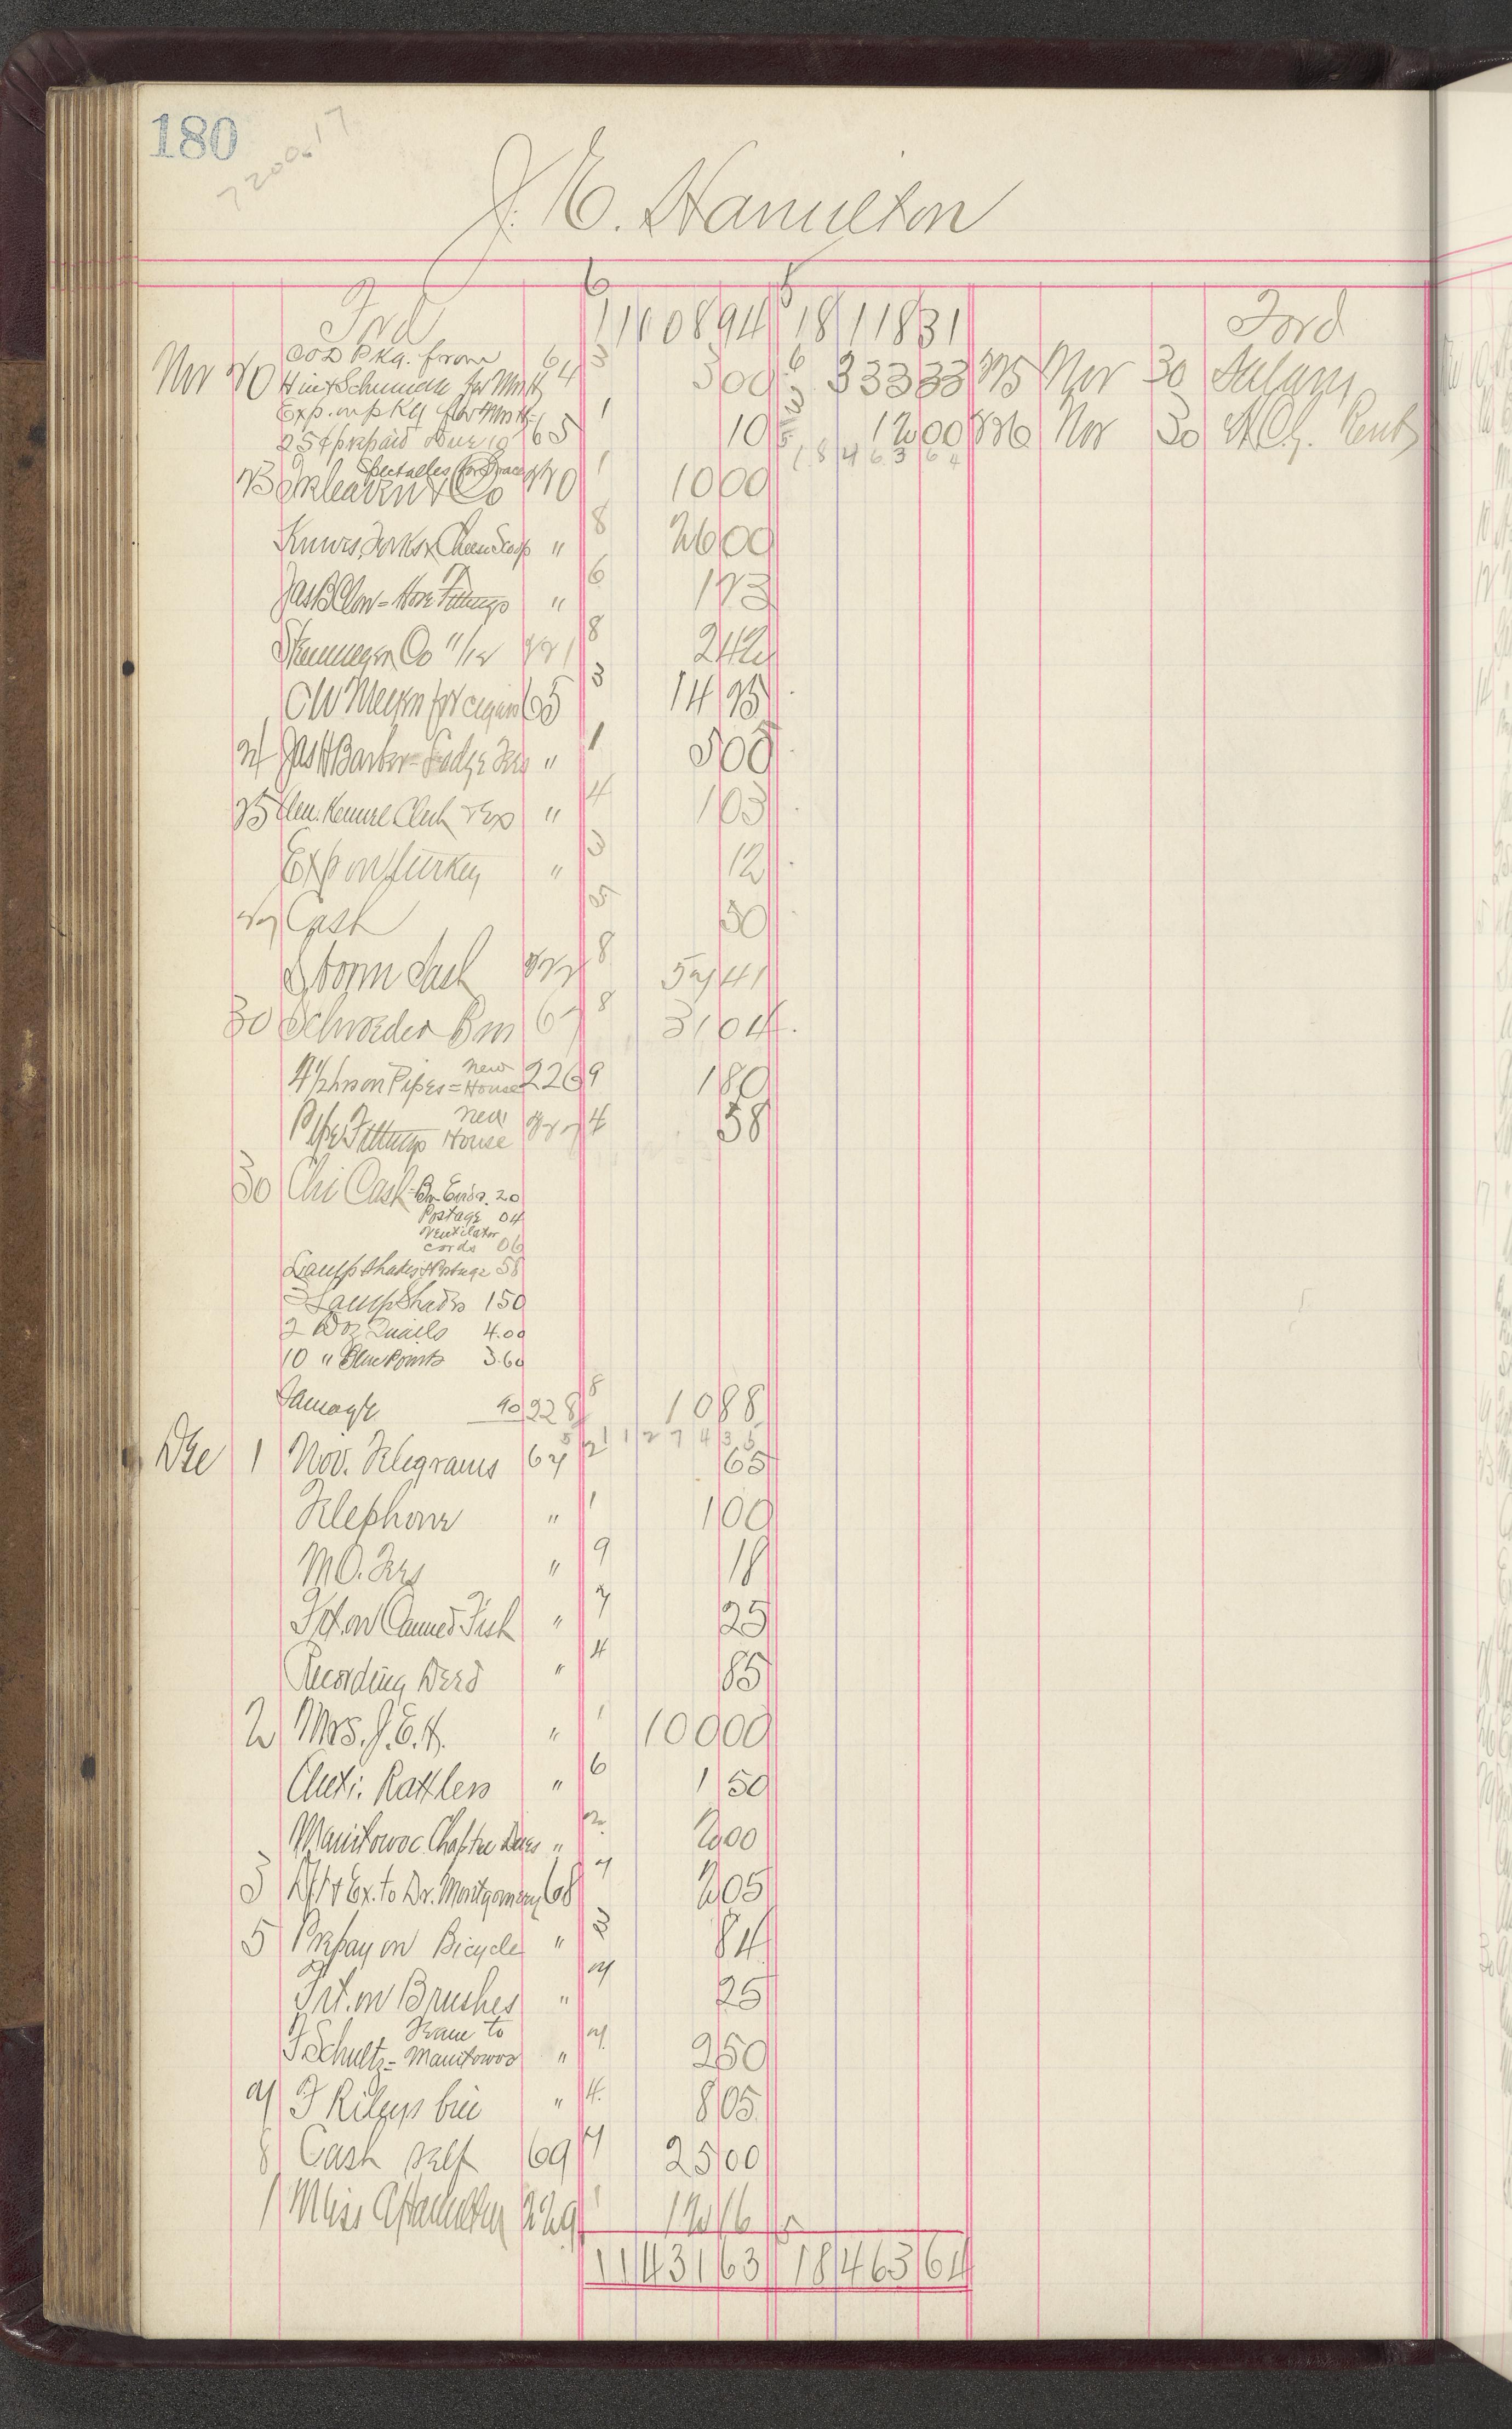 180
7200.17
J. E. Hamilton
Frd 6 11108 94 5 18118 31 Ford
Nov 20 COD Pkg. from 64 3 5 00 6 333 33 225 Nov 30 Salary
for Mrs H
Exp. on pkg for Mrs H 65 1 10 12 00 226 Nov 30 Rent
25¢ prepaid 18463 64
Spectacles for Grace
23 & Co 220 1 10 00
Knives, Forks & Cheese Scoop " 8 26 00
Jas B Clow - Hose Fittings " 6 1 73
Co 11/12 221 8 2 42
C W Meyer for cigars 65 3 14 25
24 Jas H Barker - Lodge Fees " 1 5 00
25 Kennel Club & Exp " 4 1 03
Exp on Turkey " 3 12
27 Cash 50
Storm Sash 222 8 57 41
30 Schroeder Bros 67 8 31 04
Pipes = New House 226 9 1 80
Pipe Fittings New House 227 4 58
30 Chi Cash - 20
Postage 04
Ventilator
cords 06
Lamp Shades & Postage 58
3 Lamp Shades 1 50
2 Doz Quails 4.00
10 " Blue Points 3.60
90 228 8 10 88
11274 35
Dec 1 Nov. Telegrams 67 2 65
Telephone " 1 1 00
M O. Fees " 9 18
Frt. on Canned Fish " 7 25
Recording Deed " 4 85
2 Mrs. J. E. H. " 1 100 00
Anti. Rattlers " 6 1 50
Manitowoc Chapter Dues " 2 2 00
3 Ex. to Dr. Montgomery 68 7 2 05
5 Prepay on Bicycle " 3 84
Frt. on Brushes " 7 25
F Schultz - Team to Manitowoc " 7 2 50
7 F Rileys bill " 4 8 05
8 Cash self 69 7 25 00
1 Miss Hamilton 229 1 12 16 5
11431 63 18463 64